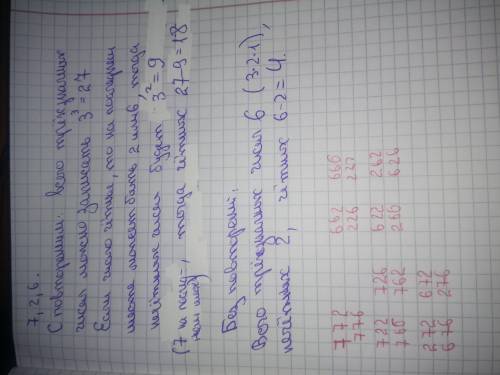 7, 2, 6.
С повторением: всего трёхзначных
чисел можно записать 3³ = 27
Если число чётное, то на последнем
месте может быть 2 или 6, тогда
нечётных чисел будет 3² = 9
(7 на послед-, тогда чётных 27-9=18
нем мих)
Без повторений:
Всего трёхзначных чисел 6 (3·2·1),
нечётных 2, чётных 6-2=4.
772 662 666
776 226 222
722 726 622 262
766 762 266 626
272 672
676 276